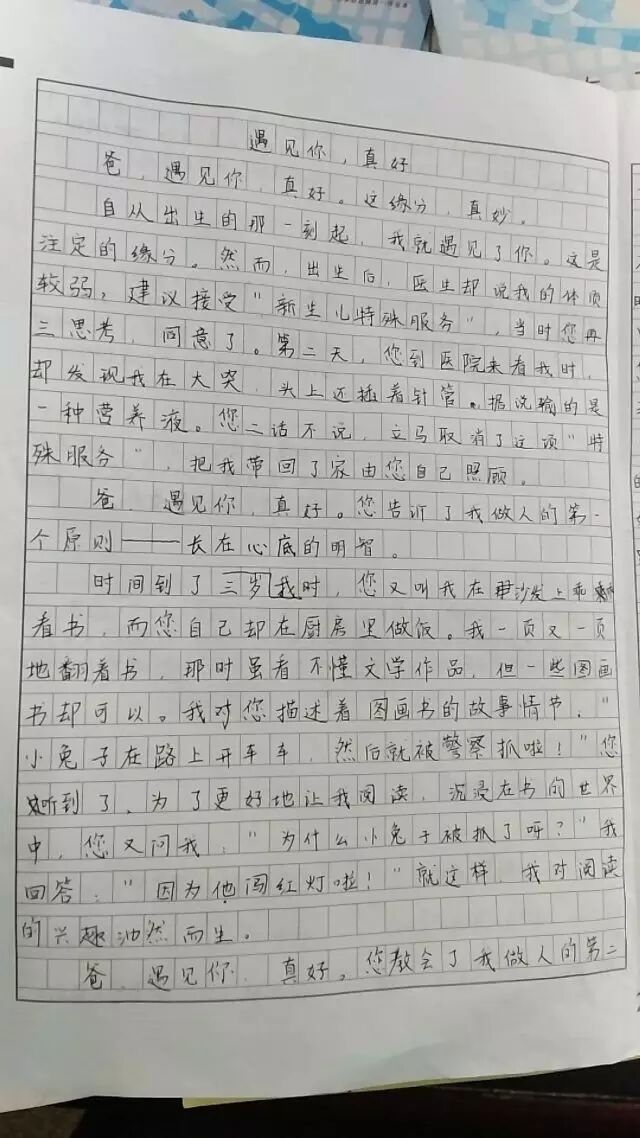 遇见你，真好
爸，遇见你，真好。这缘分，真妙。
自从出生的那一刻起，我就遇见了你。这是
注定的缘分。然而，出生后，医生却说我的体质
较弱，建议接受"新生儿特殊服务"，当时您再
三思考，同意了。第二天，您到医院来看我时，
却发现我在大哭，头上还插着针管。据说输的是
一种营养液。您二话不说，立马取消了这项"特
殊服务"，把我带回了家由您自己照顾。
爸，遇见你，真好。您告诉了我做人的第一
个原则——长在心底的明智。
时间到了三岁我时，您又叫我在沙发上乖乖
看书，而您自己却在厨房里做饭。我一页又一页
地翻着书，那时虽看不懂文学作品，但一些图画
书却可以。我对您描述着图画书的故事情节，"
小兔子在路上开车车，然后就被警察抓啦！"您
听到了，为了更好地让我阅读，沉浸在书的世界
中，您又问我："为什么小兔子被抓了呀？"我
回答："因为他闯红灯啦！"就这样，我对阅读
的兴趣油然而生。
爸，遇见你，真好。您教会了我做人的第二